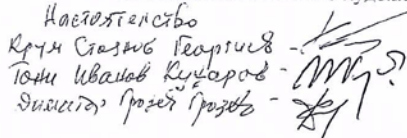 Настоятелство
Крум Стоянов Георгиев -
Тони Иванов Кухаров -
Димитър Грозев Грозев -